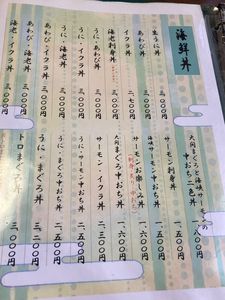 海鮮丼
生うに丼 三、〇〇〇円
うに・あわび丼 三、〇〇〇円
うに・イクラ丼 三、〇〇〇円
うに・海老丼 三、〇〇〇円
あわび・イクラ丼 三、〇〇〇円
あわび・海老丼 三、〇〇〇円
海老・イクラ丼 三、〇〇〇円
大間まぐろと海峡サーモンの
中おち二色丼 一、八〇〇円
サーモン刺身丼
海峡サーモン中おち丼
サーモンお楽しみ丼
大間まぐろ中おち丼 一、六〇〇円
サーモン・イクラ丼
うに・サーモン中おち丼 二、五〇〇円
うに・まぐろ中おち丼 二、五〇〇円
うに・まぐろ丼 三、二〇〇円
トロまぐろ丼 三、〇〇〇円